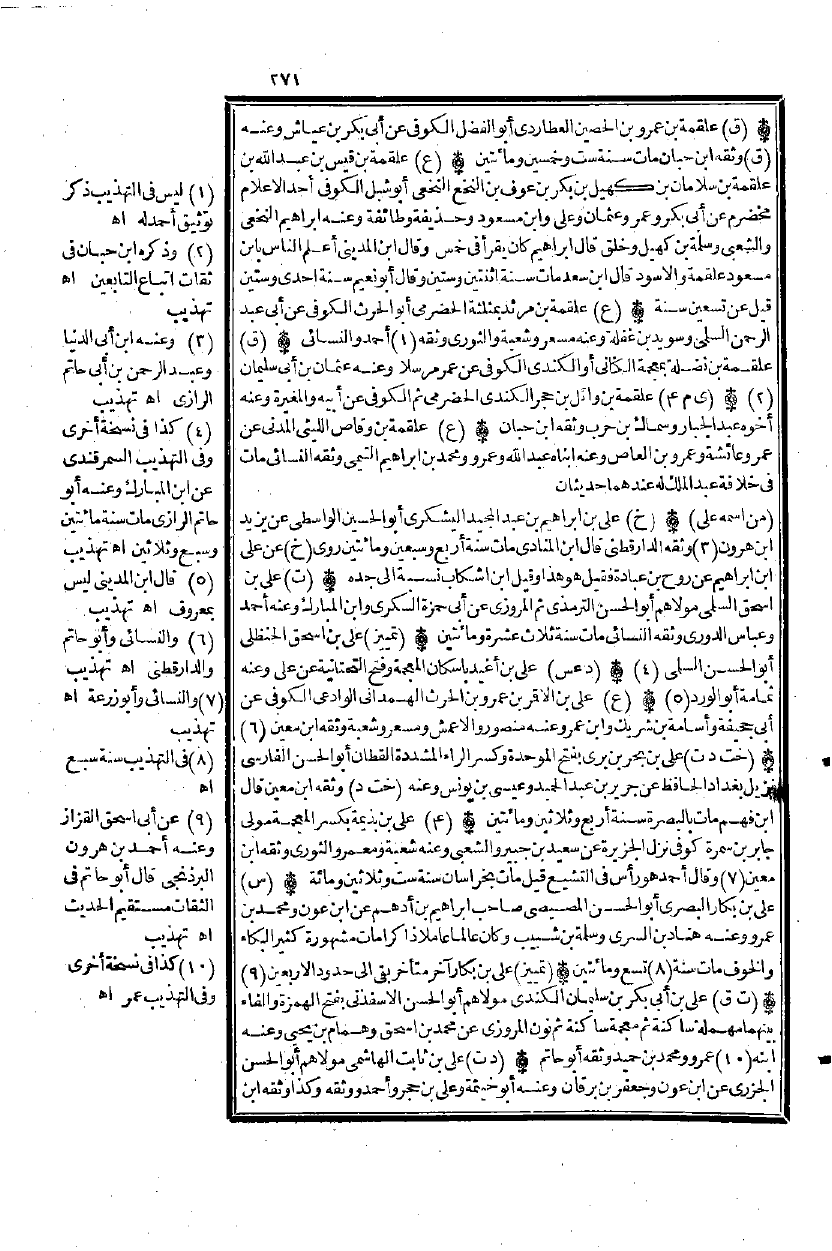 ٢٧١
(ق) علقمة بن عمرو بن الحصين العطاردى أبو الفضل الكوفى عن أبى بكر بن عياش وعنه
(ق) وثقه ابن حبان مات سنة ست وخمسين ومائتين (ع) علقمة بن قيس بن عبد الله بن
علقمة بن سلامان بن كهيل بن بكر بن عوف بن النخع النخعى أبو شبل الكوفى أحد الاعلام
مخضرم عن أبى بكر وعمر وعثمان وعلى وابن مسعود وحذيفة وطائفة وعنه ابراهيم النخعى
والشعبى وسلمة بن كهيل وخلق قال ابراهيم كان يقرأ فى خمس وقال ابن المدينى أعلم الناس بابن
مسعود علقمة والاسود قال ابن سعد مات سنة اثنتين وستين وقال أبو نعيم سنة احدى وستين
قيل عن تسعين سنة (ع) علقمة بن مرثد بمثلثة الحضرمى أبو الحرث الكوفى عن أبى عبد
الرحمن السلمى وسويد بن غفلة وعنه مسعر وشعبة والثورى وثقه (١) أحمد والنسائى (ق)
علقمة بن نضلة بمعجمة الكنانى أو الكندى الكوفى عن عمر مرسلا وعنه عثمان بن أبى سليمان
(٢) (ى م ٤) علقمة بن وائل بن حجر الكندى الحضرمى ثم الكوفى عن أبيه والمغيرة وعنه
أخوه عبد الجبار وسماك بن حرب وثقه ابن حبان (ع) علقمة بن وقاص الليثى المدنى عن
عمر وعائشة وعمرو بن العاص وعنه ابناه عبد الله وعمرو ومحمد بن ابراهيم التيمى وثقه النسائى مات
فى خلافة عبد الملك له عندهما حديثان
(من اسمه على) (خ) على بن ابراهيم بن عبد المجيد اليشكرى أبو الحسين الواسطى عن يزيد
ابن هرون (٣) وثقه الدارقطنى قال ابن المنادى مات سنة أربع وسبعين ومائتين روى (خ) عن على
ابن ابراهيم عن روح بن عبادة فقيل هو هذا وقيل ابن اشكاب نسبة الى جده (ت) على بن
اسحق السلمى مولاهم أبو الحسن الترمذى ثم المروزى عن أبى حمزة السكرى وابن المبارك وعنه أحمد
وعباس الدورى وثقه النسائى مات سنة ثلاث عشرة ومائتين (تمييز) على بن اسحق الحنظلى
أبو الحسن السلمى (٤) (د عس) على بن أغيد باسكان المعجمة وفتح التحتانية عن على وعنه
ثمامة أبو الورد (٥) (ع) على بن الاقر بن عمرو بن الحرث الهمدانى الوادعى الكوفى عن
أبى جحيفة وأسامة بن شريك وابن عمر وعنه منصور والاعمش ومسعر وشعبة وثقه ابن معين (٦)
(خت د ت) على بن بحر بن برى بفتح الموحدة وكسر الراء المشددة القطان أبو الحسن الفارسى
نزيل بغداد الحافظ عن جرير بن عبد الحميد وعيسى بن يونس وعنه (خت د) وثقه ابن معين قال
ابن فهم مات بالبصرة سنة أربع وثلاثين ومائتين (٤) على بن بذيمة بكسر المعجمة مولى
جابر بن سمرة كوفى نزل الجزيرة عن سعيد بن جبير والشعبى وعنه شعبة ومعمر والثورى وثقه ابن
معين (٧) وقال أحمد هو رأس فى التشيع قيل مات بخراسان سنة ست وثلاثين ومائة (س)
على بن بكار البصرى أبو الحسن المصيصى صاحب ابراهيم بن أدهم عن ابن عون ومحمد بن
عمرو وعنه هناد بن السرى وسلمة بن شبيب وكان عالما عاملا ذا كرامات مشهورة كثير البكاء
والخوف مات سنة (٨) تسع ومائتين (تمييز) على بن بكار آخر متأخر بقى الى حدود الاربعين (٩)
(ت ق) على بن أبى بكر بن سليمان الكندى مولاهم أبو الحسن الاسفذنى بفتح الهمزة والفاء
بينهما مهملة ساكنة ثم معجمة ساكنة ثم نون المروزى عن محمد بن اسحق وهمام بن يحيى وعنه
ابنه (١٠) عمرو ومحمد بن حميد وثقه أبو حاتم (د ت) على بن ثابت الهاشمى مولاهم أبو الحسن
الجزرى عن ابن عون وجعفر بن برقان وعنه أبو خيثمة وعلى بن حجر وأحمد ووثقه وكذا وثقه ابن
(١) ليس فى التهذيب ذكر
توثيق أحمد له اه
(٢) وذكره ابن حبان فى
ثقات اتباع التابعين اه
تهذيب
(٣) وعنه ابن أبى الدنيا
وعبد الرحمن بن أبى حاتم
الرازى اه تهذيب
(٤) كذا فى نسخة أخرى
وفى التهذيب السمرقندى
عن ابن المبارك وعنه أبو
حاتم الرازى مات سنة مائتين
وسبع وثلاثين اه تهذيب
(٥) قال ابن المدينى ليس
بمعروف اه تهذيب
(٦) والنسائى وأبو حاتم
والدارقطنى اه تهذيب
(٧) والنسائى وأبو زرعة اه
تهذيب
(٨) فى التهذيب سنة سبع
اه
(٩) عن أبى اسحق الفزار
وعنه أحمد بن هرون
البرذنجى قال أبو حاتم فى
الثقات مستقيم الحديث
اه تهذيب
(١٠) كذا فى نسخة أخرى
وفى التهذيب عمر اه